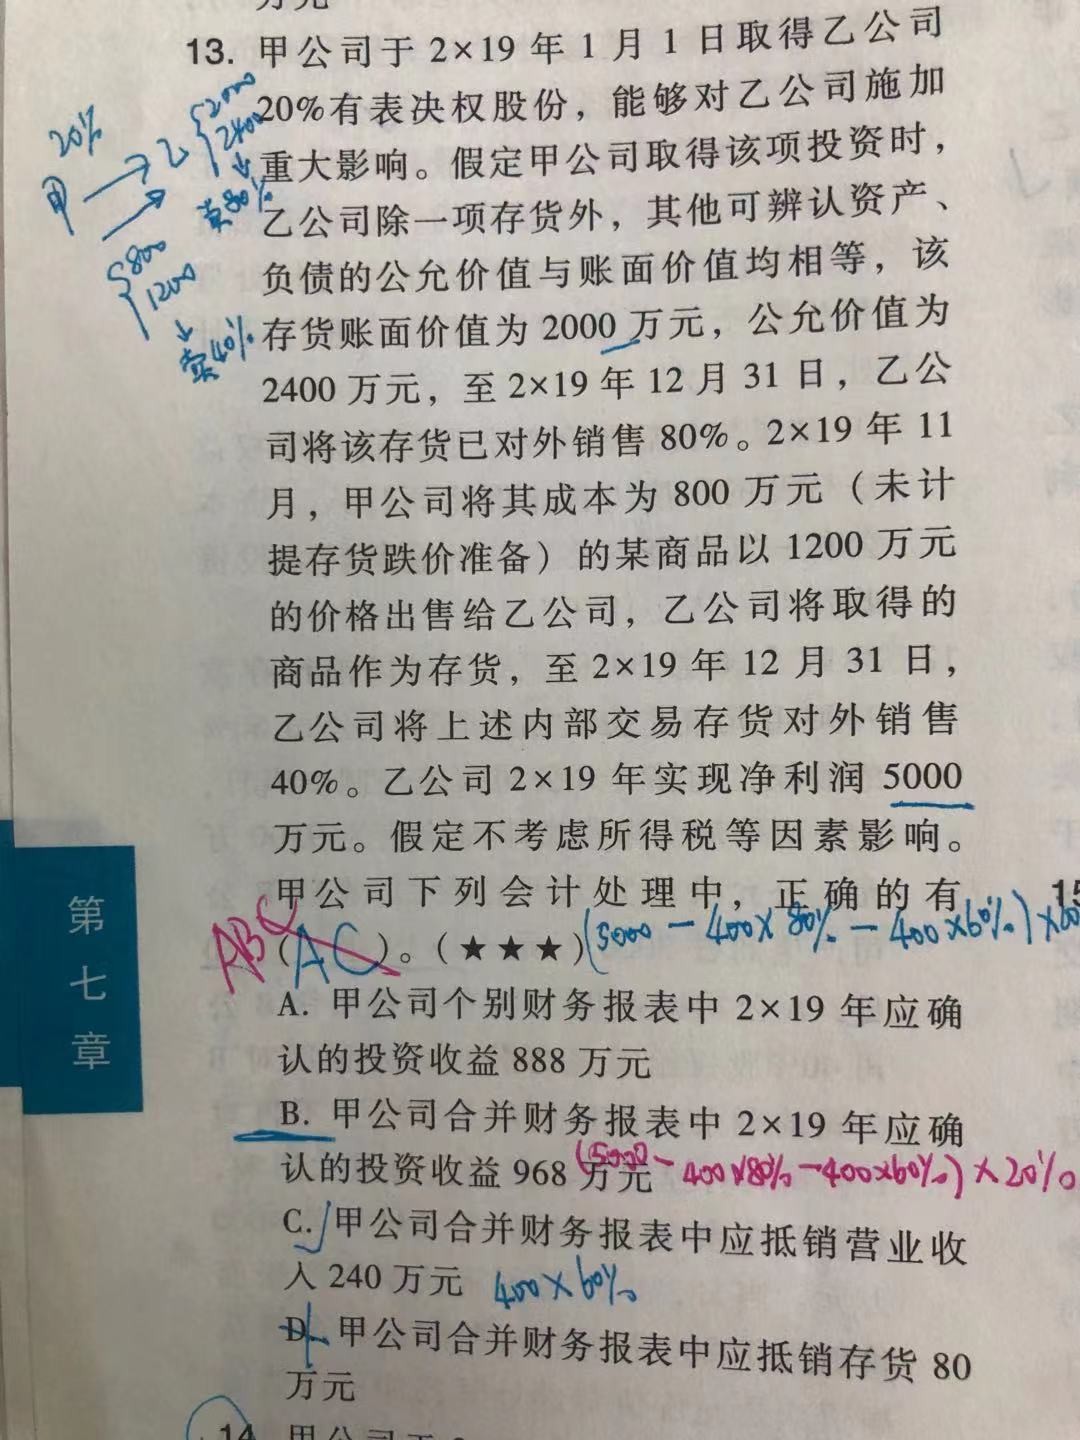 万元
13. 甲公司于 2×19 年 1 月 1 日取得乙公司
20%有表决权股份，能够对乙公司施加
重大影响。假定甲公司取得该项投资时，
乙公司除一项存货外，其他可辨认资产、
负债的公允价值与账面价值均相等，该
存货账面价值为 2000 万元，公允价值为
2400 万元，至 2×19 年 12 月 31 日，乙公
司将该存货已对外销售 80%。2×19 年 11
月，甲公司将其成本为 800 万元（未计
提存货跌价准备）的某商品以 1200 万元
的价格出售给乙公司，乙公司将取得的
商品作为存货，至 2×19 年 12 月 31 日，
乙公司将上述内部交易存货对外销售
40%。乙公司 2×19 年实现净利润 5000
万元。假定不考虑所得税等因素影响。
甲公司下列会计处理中，正确的有
（ ）。（★★★）
A. 甲公司个别财务报表中 2×19 年应确
认的投资收益 888 万元
B. 甲公司合并财务报表中 2×19 年应确
认的投资收益 968 万元
C. 甲公司合并财务报表中应抵销营业收
入 240 万元
D. 甲公司合并财务报表中应抵销存货 80
万元
14
15
第
七
章
20%
甲
乙
2000
2400
卖80%
800
1200
卖40%
ABC
AC
(5000 - 400×80% - 400×60%)×
(5000 - 400×80% - 400×60%)×20%
400×60%